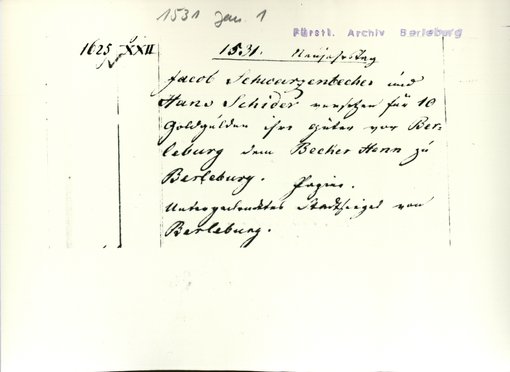 1531 Jan. 1
Fürstl. Archiv Berleburg
1625 XXII
1531. Neujahrstag
Jacob Schwarzenbecher und
Hans Schider versetzen für 10
Goldgülden ihre güter vor Ber-
leburg dem Becher Henn zu
Berleburg. Papier.
Untergedrucktes Stadtsiegel von
Berleburg.